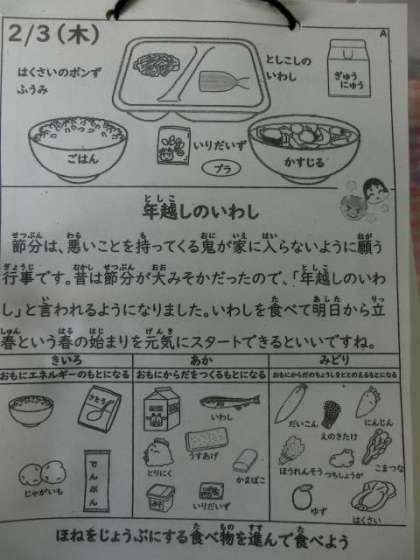 2/3(木)
A
はくさいのポンず
ふうみ
としこしの
いわし
ぎゅう
にゅう
ごはん
いりだいず
プラ
かすじる
年越しのいわし
節分は、悪いことを持ってくる鬼が家に入らないように願う
行事です。昔は節分が大みそかだったので、「年越しのいわ
し」と言われるようになりました。いわしを食べて明日から立
春という春の始まりを元気にスタートできるといいですね。
きいろ
おもにエネルギーのもとになる
さとう
じゃがいも
でんぷん
あか
おもにからだをつくるもとになる
いわし
うすあげ
とりにく
かまぼこ
いりだいず
みどり
おもにからだのちょうしをととのえるもとになる
だいこん
えのきたけ
にんじん
ほうれんそう
つちしょうが
こまつな
ゆず
はくさい
ほねをじょうぶにする食べ物を進んで食べよう